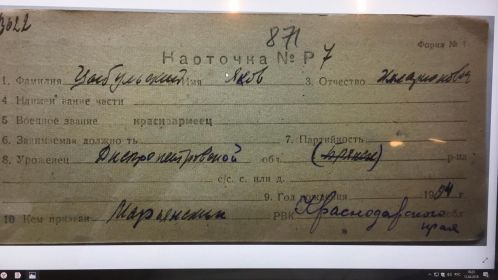 3622
871
Карточка № Р 7
Форма № 1
1. Фамилия Цыбульский Имя Яков 3. Отчество Илларионович
4. Наименование части
5. Военное звание красноармеец
6. Занимаемая должность 7. Партийность
8. Уроженец Днепропетровской обл. р-на
с/с. с. или д.
9. Год рождения 1904
10 Кем призван Марьянским РВК Краснодарского
края